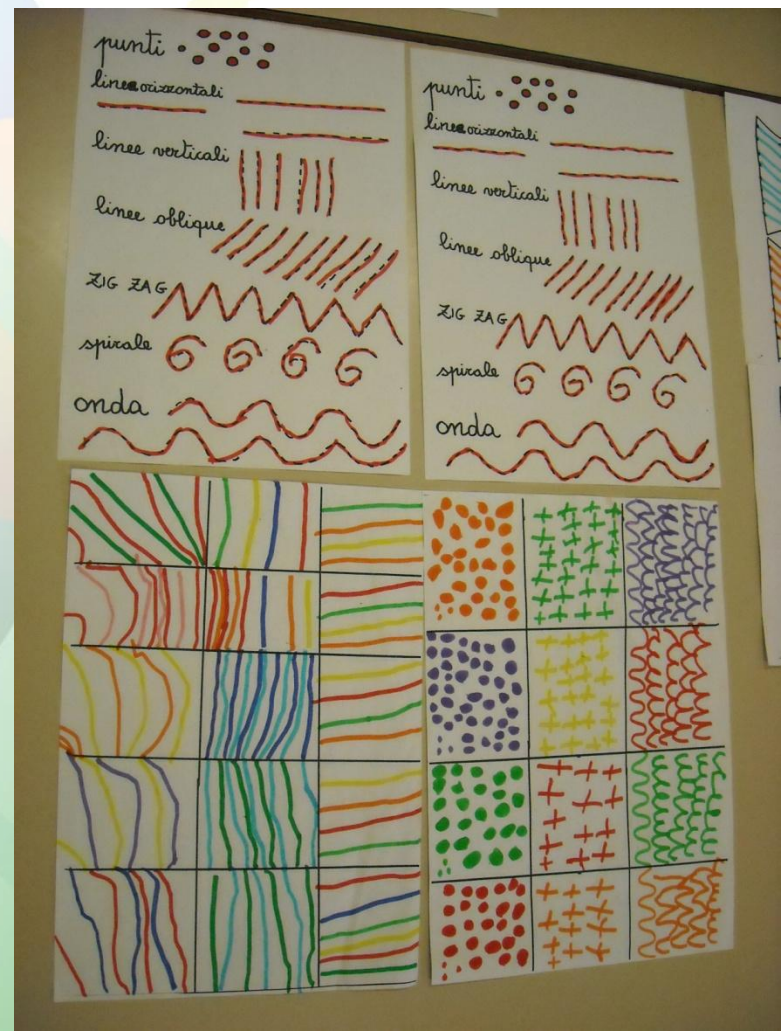 punti
linee orizzontali
linee verticali
linee oblique
ZIG ZAG
spirale
onda
punti
linee orizzontali
linee verticali
linee oblique
ZIG ZAG
spirale
onda